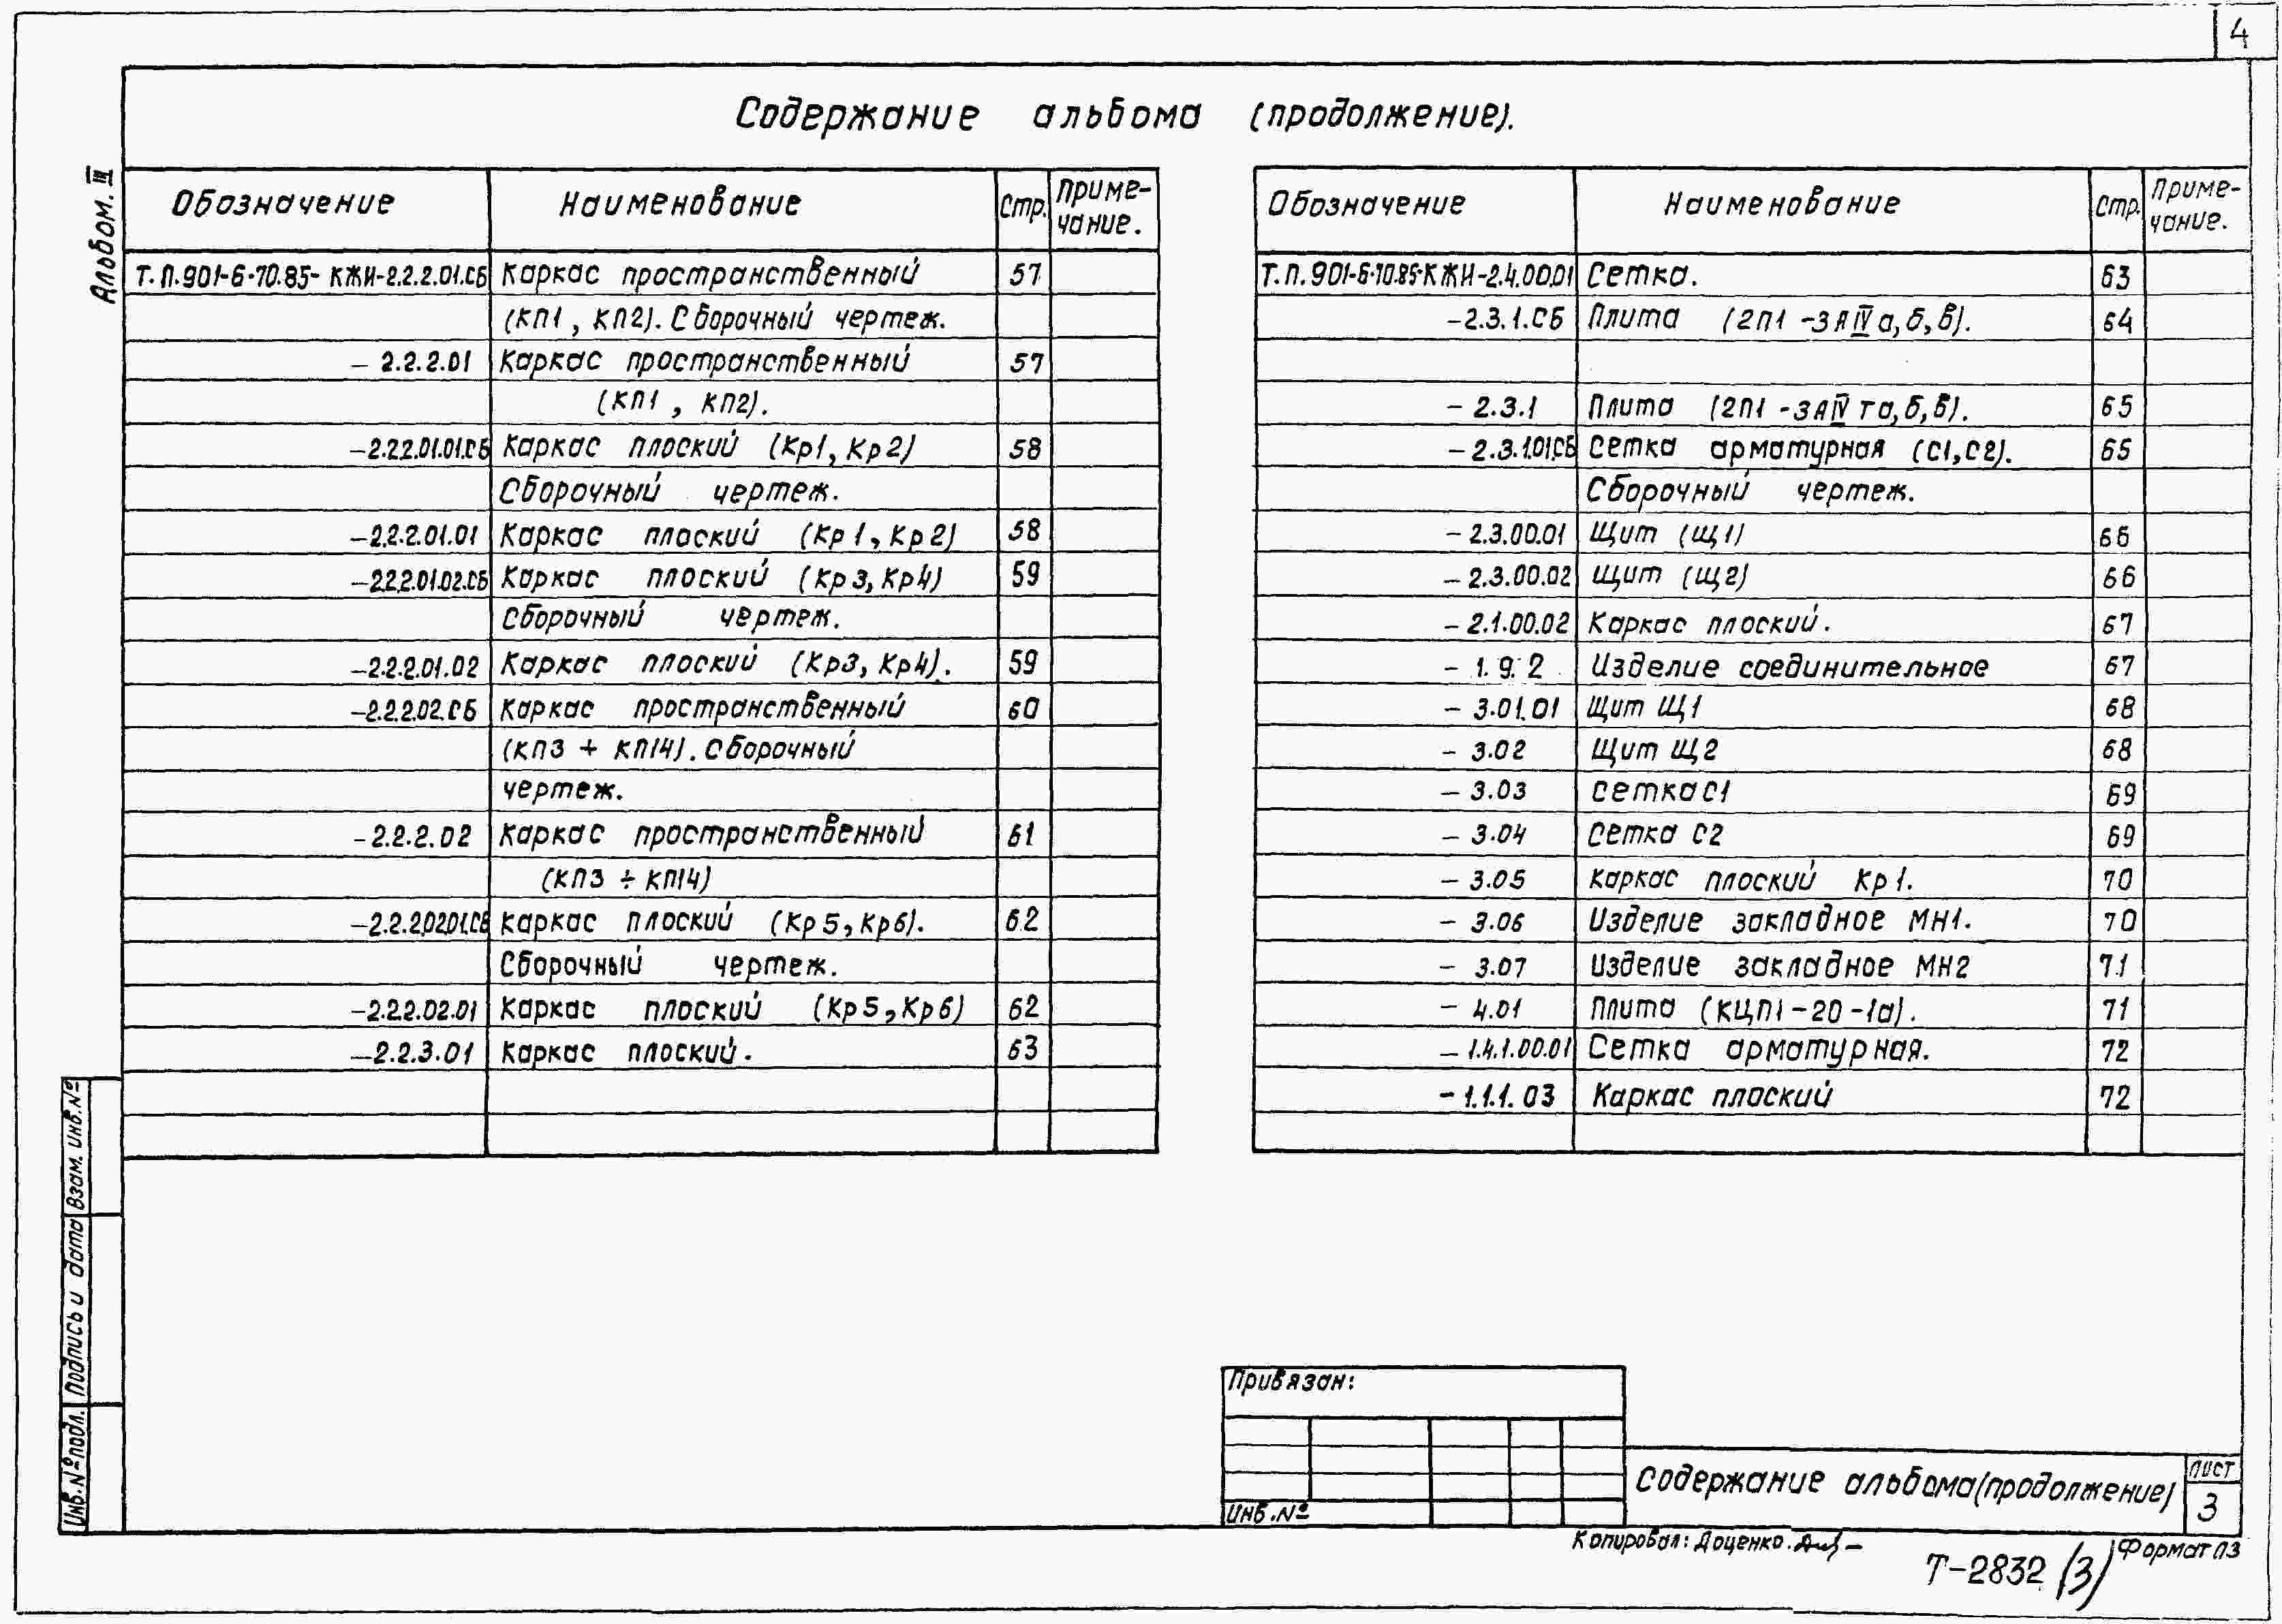 4
Содержание альбома (продолжение).
Альбом. III
Обозначение Наименование Стр. Приме-
чание.
Т.П.901-6-70.85-КЖИ-2.2.2.01.СБ Каркас пространственный 57
(КП1, КП2). Сборочный чертеж.
- 2.2.2.01 Каркас пространственный 57
(КП1, КП2).
-2.2.2.01.01.СБ Каркас плоский (Кр1, Кр2) 58
Сборочный чертеж.
-2.2.2.01.01 Каркас плоский (Кр1, Кр2) 58
-2.2.2.01.02.СБ Каркас плоский (Кр3, Кр4) 59
Сборочный чертеж.
-2.2.2.01.02 Каркас плоский (Кр3, Кр4). 59
-2.2.2.02.СБ Каркас пространственный 60
(КП3 ÷ КП14). Сборочный
чертеж.
-2.2.2.02 Каркас пространственный 61
(КП3 ÷ КП14)
-2.2.2.02.01.СБ Каркас плоский (Кр5, Кр6). 62
Сборочный чертеж.
-2.2.2.02.01 Каркас плоский (Кр5, Кр6) 62
-2.2.3.01 Каркас плоский. 63
Обозначение Наименование Стр. Приме-
чание.
Т.П.901-6-70.85-КЖИ-2.4.00.01 Сетка. 63
-2.3.1.СБ Плита (2П1-3АIVа,б,в). 64
- 2.3.1 Плита (2П1-3АIVта,б,в). 65
-2.3.1.01СБ Сетка арматурная (С1,С2). 65
Сборочный чертеж.
- 2.3.00.01 Щит (Щ1) 66
- 2.3.00.02 Щит (Щ2) 66
- 2.1.00.02 Каркас плоский. 67
- 1.9.2 Изделие соединительное 67
- 3.01.01 Щит Щ1 68
- 3.02 Щит Щ2 68
- 3.03 Сетка С1 69
- 3.04 Сетка С2 69
- 3.05 Каркас плоский Кр1. 70
- 3.06 Изделие закладное МН1. 70
- 3.07 Изделие закладное МН2 71
- 4.01 Плита (КЦП1-20-1а). 71
- 1.4.1.00.01 Сетка арматурная. 72
- 1.1.1.03 Каркас плоский 72
Взам. инв.№
Подпись и дата
Инв.№подл.
Привязан:
Инв.№
Содержание альбома (продолжение)
Лист
3
Копировал: Доценко.
Формат А3
Т-2832 (3)